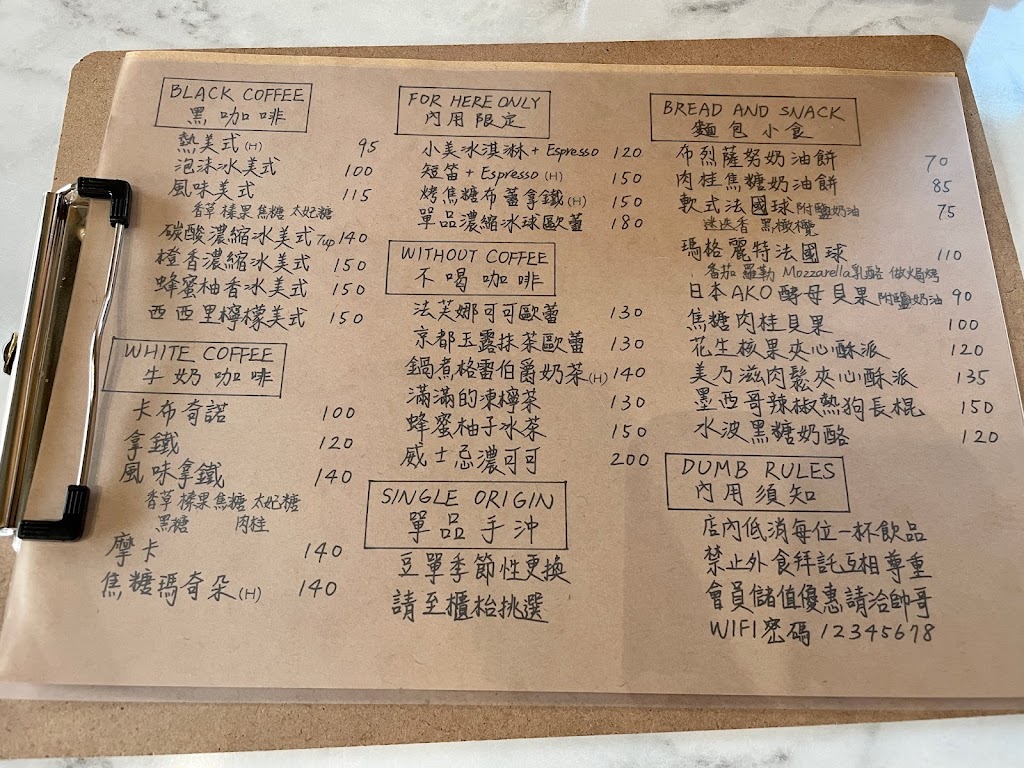 BLACK COFFEE
黑咖啡
熱美式(H) 95
泡沫冰美式 100
風味美式 115
香草 榛果 焦糖 太妃糖
碳酸濃縮冰美式 7up 140
橙香濃縮冰美式 150
蜂蜜柚香冰美式 150
西西里檸檬美式 150
WHITE COFFEE
牛奶咖啡
卡布奇諾 100
拿鐵 120
風味拿鐵 140
香草 榛果 焦糖 太妃糖
黑糖 肉桂
摩卡 140
焦糖瑪奇朵(H) 140
FOR HERE ONLY
內用限定
小美冰淇淋 + Espresso 120
短笛 + Espresso (H) 150
烤焦糖布蕾拿鐵(H) 150
單品濃縮冰球歐蕾 180
WITHOUT COFFEE
不喝咖啡
法芙娜可可歐蕾 130
京都玉露抹茶歐蕾 130
鍋煮格雷伯爵奶茶(H) 140
滿滿的凍檸茶 130
蜂蜜柚子冰茶 150
威士忌濃可可 200
SINGLE ORIGIN
單品手沖
豆單季節性更換
請至櫃枱挑選
BREAD AND SNACK
麵包小食
布烈薩努奶油餅 70
肉桂焦糖奶油餅 85
軟式法國球 附鹽奶油 75
迷迭香 黑橄欖
瑪格麗特法國球 110
番茄 羅勒 Mozzarella乳酪 做焗烤
日本AKO酵母貝果 附鹽奶油 90
焦糖肉桂貝果 100
花生核果夾心酥派 120
美乃滋肉鬆夾心酥派 135
墨西哥辣椒熱狗長棍 150
水波黑糖奶酪 120
DUMB RULES
內用須知
店內低消每位一杯飲品
禁止外食拜託互相尊重
會員儲值優惠請洽帥哥
WIFI密碼 12345678